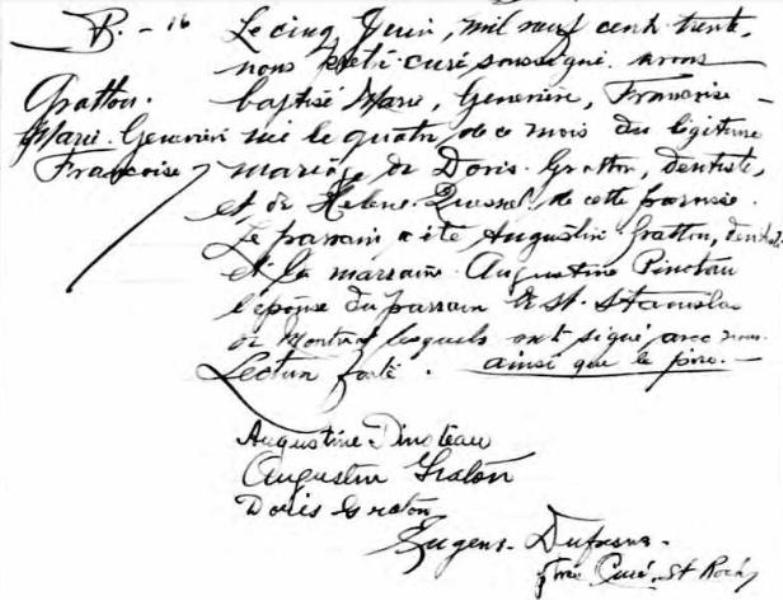 B. - 16
Gratton.
Marie. Genevieve
Francoise
Le cinq Juin, mil neuf cent trente,
nous prêtre curé soussigné avons
baptisé Marie, Genevieve, Francoise -
née le quatre de ce mois du légitime
mariage de Doris Gratton, dentiste,
et de Helene Quesnel, de cette paroisse.
Le parrain a été Augustin Gratton, dentiste
et la marraine Augustine Pinoteau
l'épouse du parrain de St. Stanislas
de Montreal lesquels ont signé avec nous
Lecture faite. ainsi que le père. -
Augustine Pinoteau
Augustin Graton
Doris Graton
Eugene Dufresne
ptre Curé St Roch